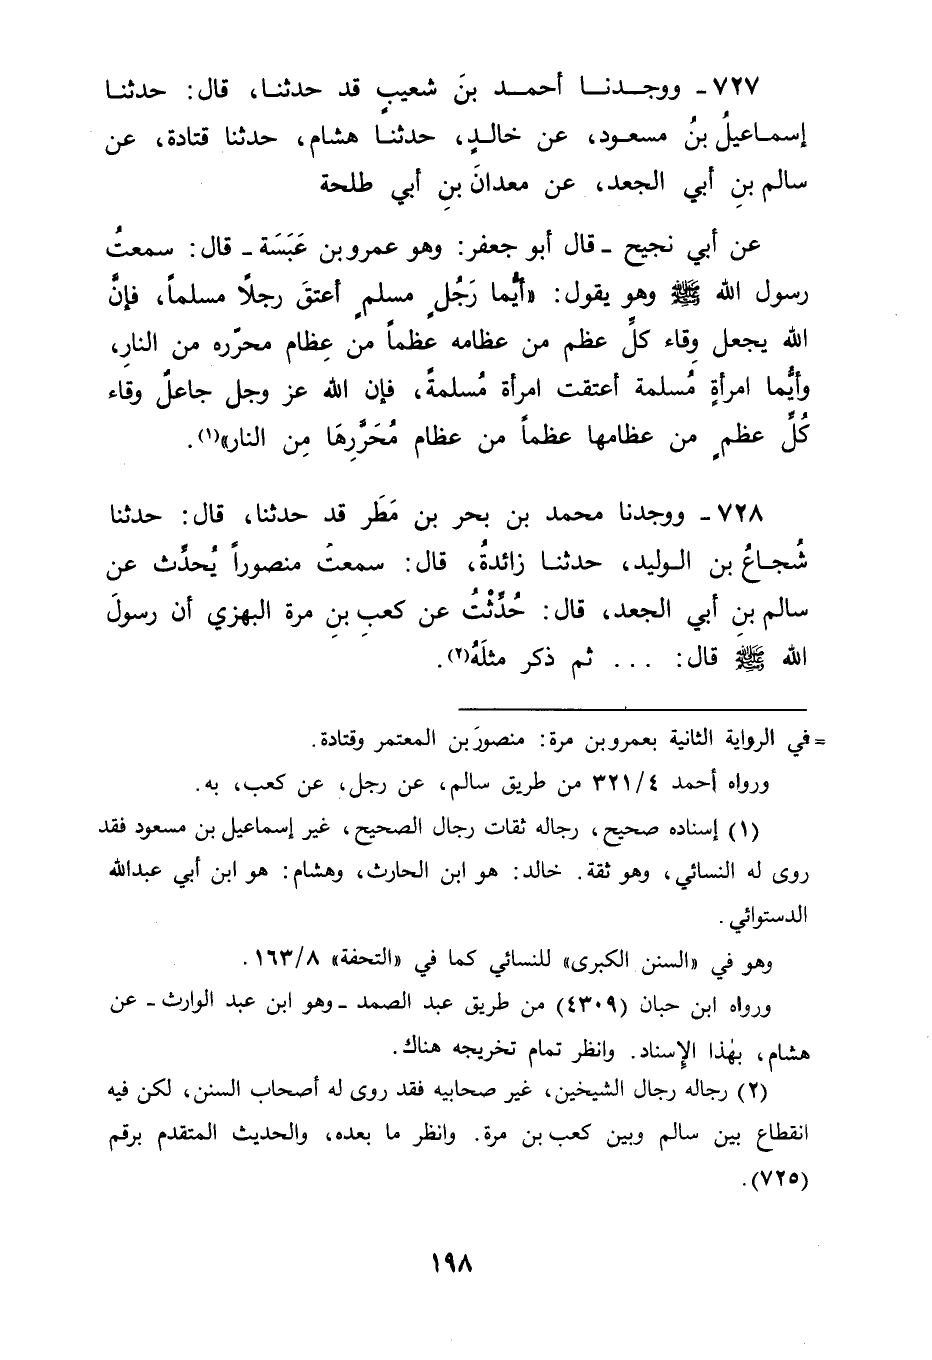 ٧٢٧ـ ووجـدنـا أحمـد بنَ شعيبٍ قد حدثنـا، قال: حدثنـا
إسمـاعيلُ بنُ مسعـود، عن خالـدٍ، حدثنـا هشام، حدثنا قتادة، عن
سالم بنِ أبي الجعد، عن معدانَ بنِ أبي طلحة
عن أبي نجيح ـ قال أبو جعفر: وهو عمرو بن عَبَسَة ـ قال: سمعتُ
رسول الله ﷺ وهو يقول: «أيُّما رَجُلٍ مسلمٍ أعتقَ رجلاً مسلماً، فإنَّ
الله يجعل وِقاء كلِّ عظم من عظامه عظماً من عِظام محرّره من النارِ،
وأيُّما امرأةٍ مُسلمة أعتقت امرأة مُسلمةً، فإن الله عز وجل جاعلٌ وقاء
كُلِّ عظمٍ من عظامها عظماً من عظام مُحَرِّرِهَا مِن النار»(١).
٧٢٨ ـ ووجدنا محمد بن بحر بن مَطَر قد حدثنا، قال: حدثنا
شُجـاعُ بن الـوليد، حدثنـا زائدةُ، قال: سمعتُ منصوراً يُحدِّث عن
سالم بنِ أبي الجعد، قال: حُدِّثْتُ عن كعبِ بنِ مرة البهزي أن رسولَ
الله ﷺ قال: ... ثم ذكر مثلَهُ(٢).
= في الرواية الثانية بعمرو بن مرة: منصورَ بن المعتمر وقتادة.
ورواه أحمد ٣٢١/٤ من طريق سالم، عن رجل، عن كعب، به.
(١) إسناده صحيح، رجاله ثقات رجال الصحيح، غير إسماعيل بن مسعود فقد
روى له النسائي، وهو ثقة. خالد: هو ابن الحارث، وهشام: هو ابن أبي عبدالله
الدستوائي.
وهو في «السنن الكبرى» للنسائي كما في «التحفة» ١٦٣/٨.
ورواه ابن حبان (٤٣٠٩) من طريق عبد الصمد ـ وهو ابن عبد الوارث ـ عن
هشام، بهٰذا الإسناد. وانظر تمام تخريجه هناك.
(٢) رجاله رجال الشيخين، غير صحابيه فقد روى له أصحاب السنن، لكن فيه
انقطاع بين سالم وبين كعب بن مرة. وانظر ما بعده، والحديث المتقدم برقم
(٧٢٥).
١٩٨